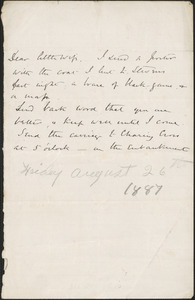 Dear little wife. I send a Porter
with the coat I lent to Stevens
last night, a brace of black game &
a map
Send back word that you are
better, & keep well until I come
Send the carriage to Charing Cross
at 5 o'clock — on the Embankment
Friday August 26th
1887